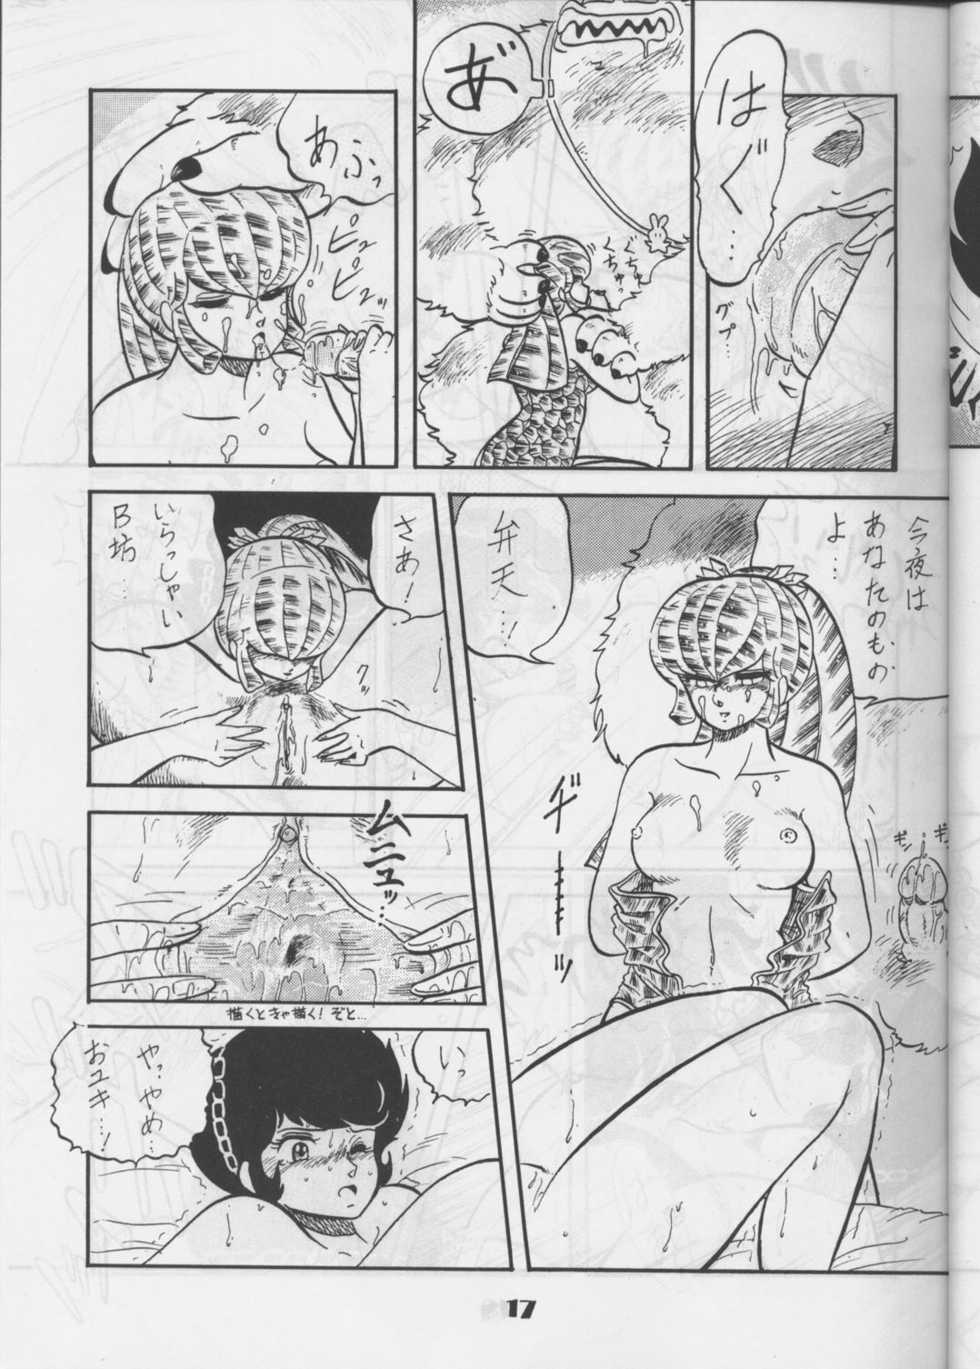 はぐ…
グプ…
あ゛
くちゅ
ちゅっ
あふっ
ピュ
ピピュッ
今夜は
あなたのもの
よ…
弁天…!
ギ
ギ
ギ……ッ
さあ!
いらっしゃい
B坊…
グッ
ムニュッ…
描くときゃ描く!ぞと…
いっ
やっやめ…
おユキ…!
17